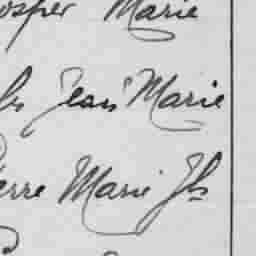 osper Marie
fs Jean Marie
erre Marie Jh